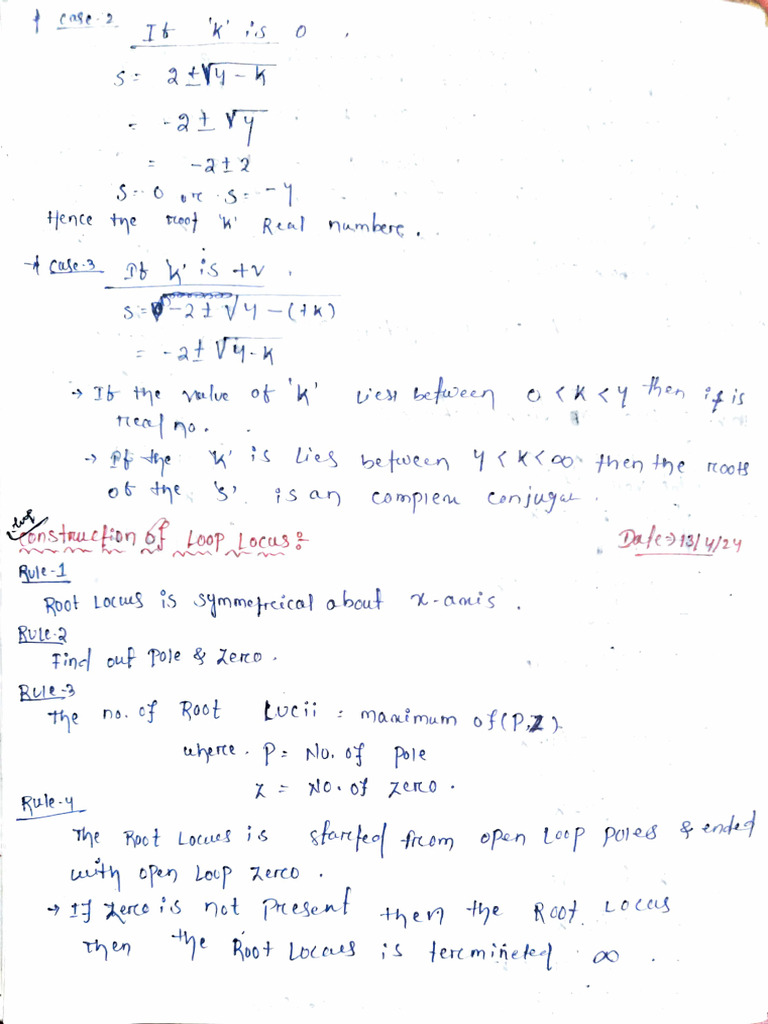 * Case-2 If 'K' is 0.
S = 2 ± √4 - K
= -2 ± √4
= -2 ± 2
S = 0 or S = -4
Hence the root 'K' Real numbers.
* Case-3 If 'K' is +v.
S = -2 ± √4 - (+K)
= -2 ± √4-K
→ If the value of 'K' lies between 0 < K < 4 then it is
real no.
→ If the 'K' is lies between 4 < K < ∞ then the roots
of the 's'. is an complex conjugar.
Construction of Loop Locus: Date⇒13/4/24
Rule-1
Root Locus is symmetrical about x-axis.
Rule-2
Find out Pole & Zero.
Rule-3
The no. of Root Lucii = maximum of (P,Z).
where. P = No. of Pole
Z = No. of Zero.
Rule-4
The Root Locus is started from open Loop Poles & ended
with open Loop Zero.
→ If Zero is not Present then the Root Locus
then the Root Locus is termineted ∞.